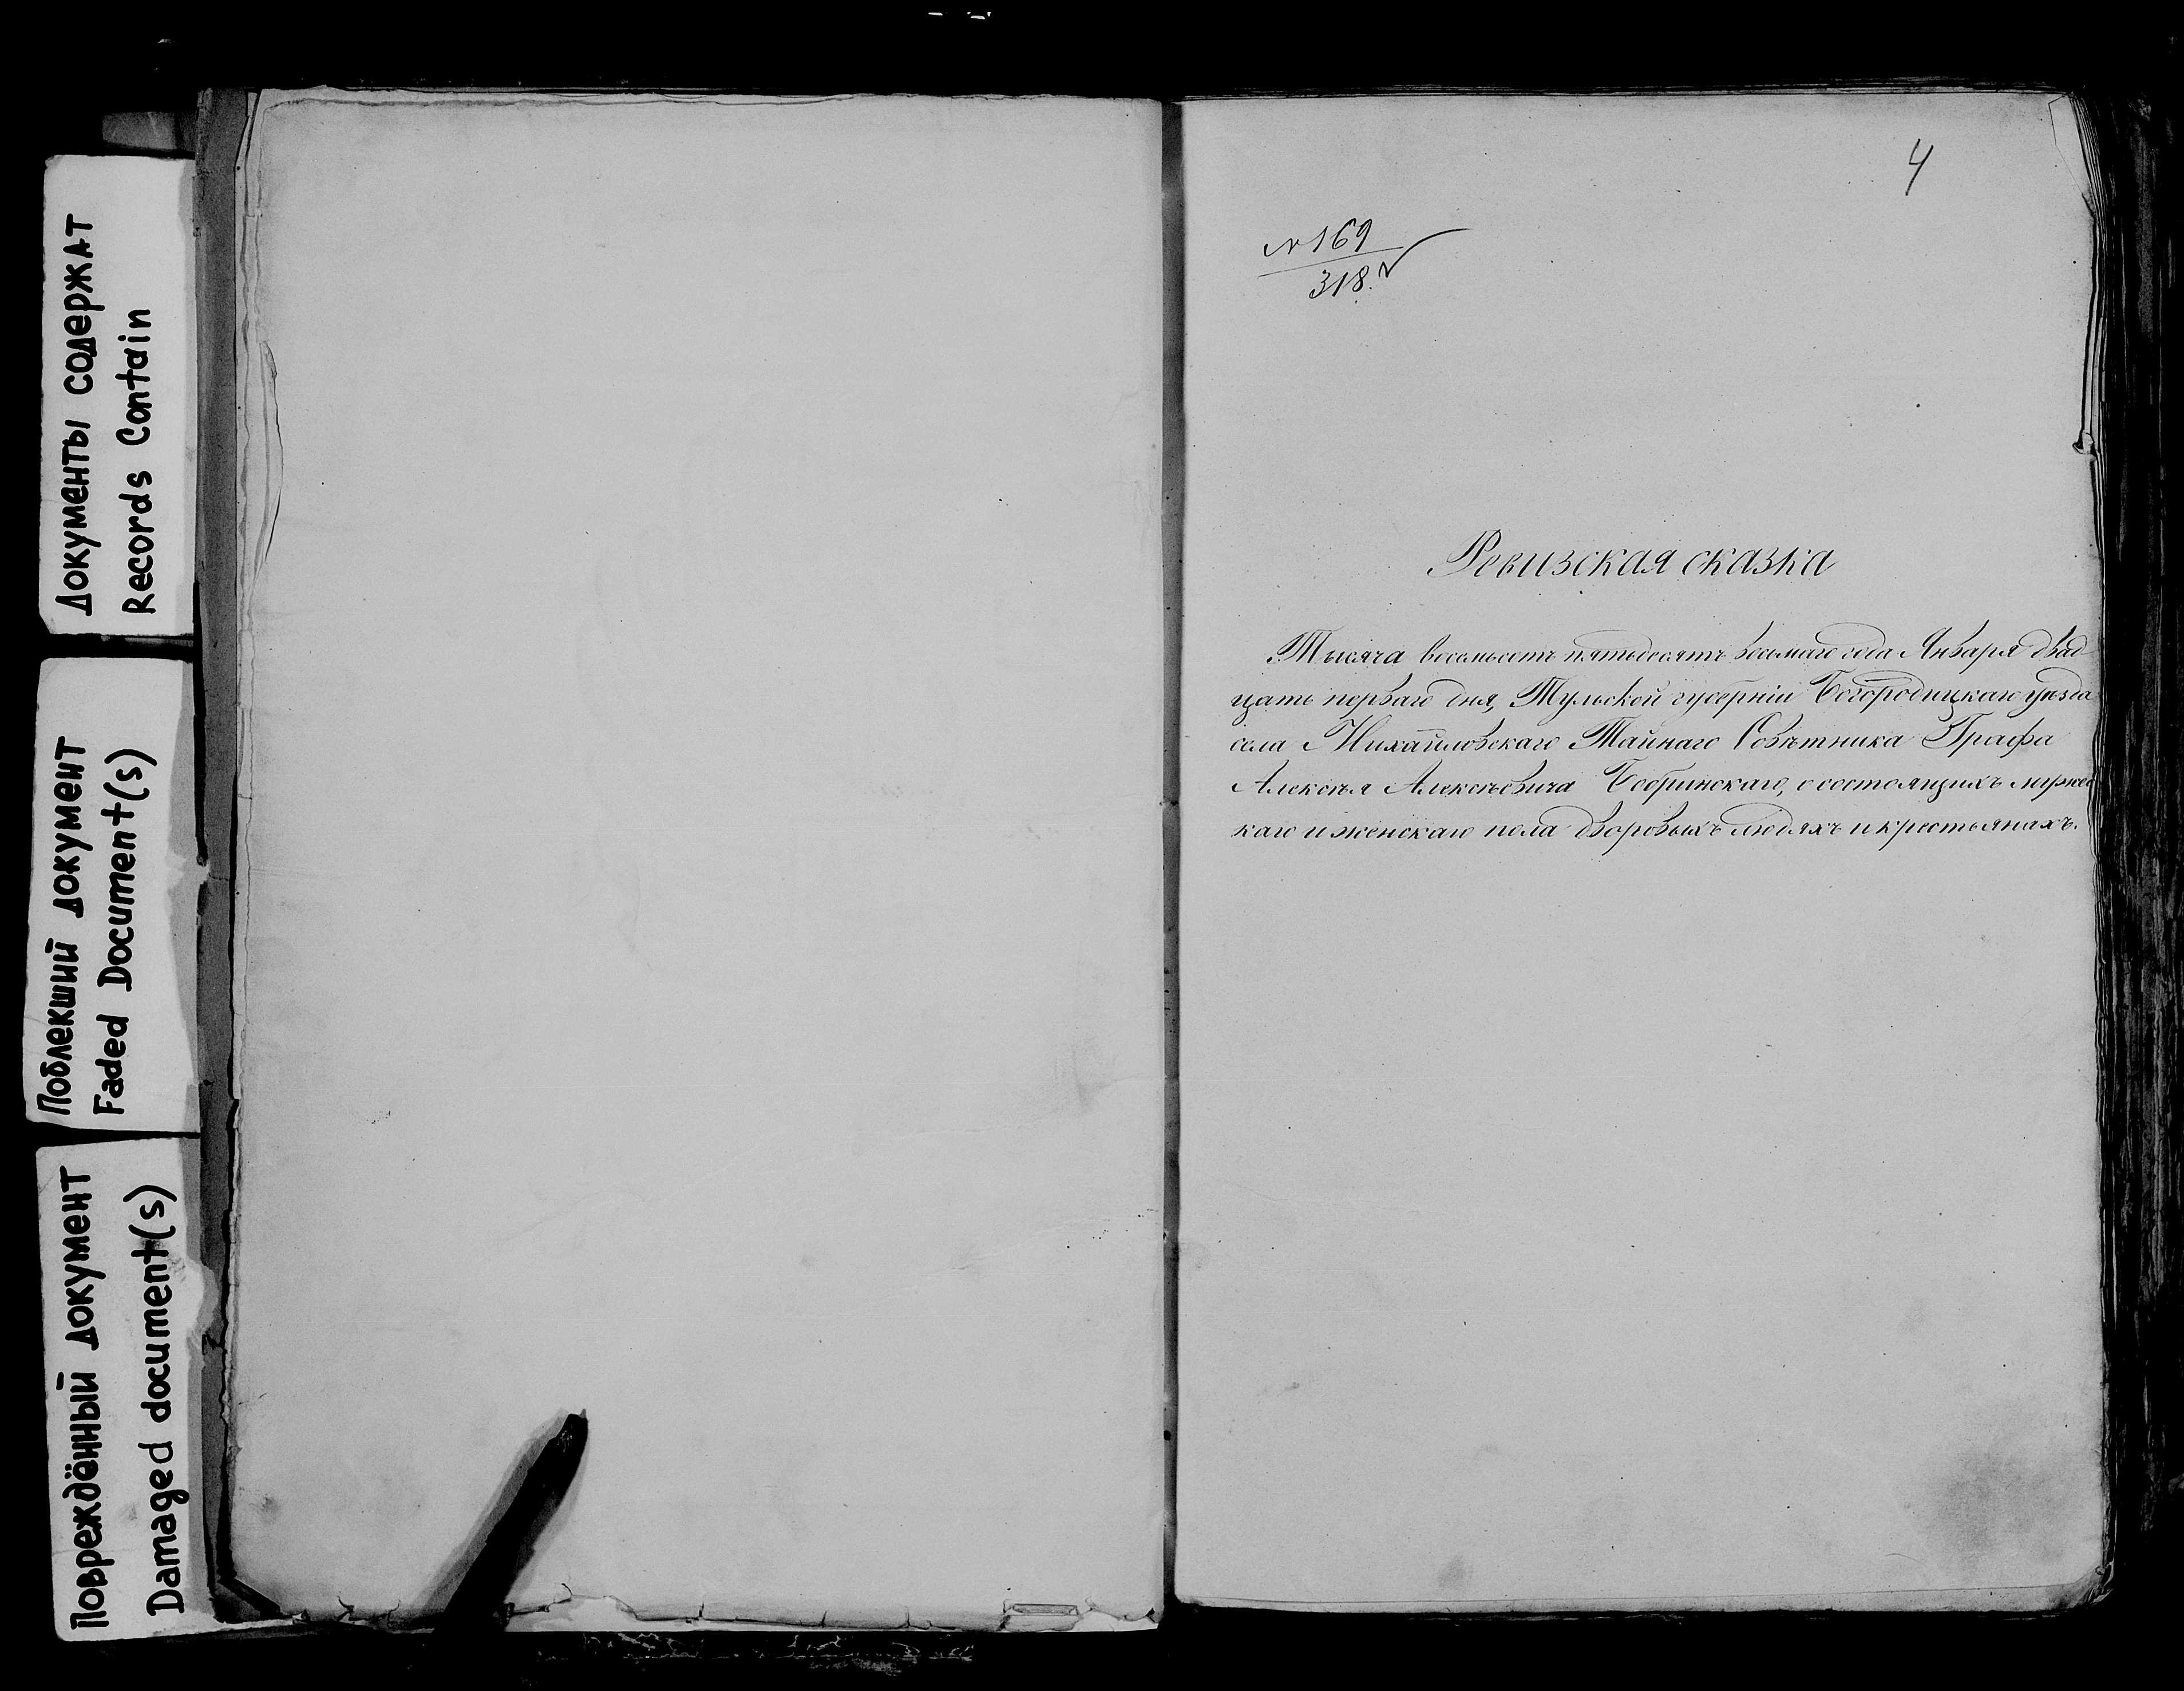 Документы содержат
Records Contain
Поблекший документ
Faded Document(s)
Повреждённый документ
Damaged document(s)
4
№ 169
318.
Ревизская сказка
Тысяча восемьсотъ пятьдесятъ восьмаго года Января двад
цать перваго дня, Тульской губерніи Богородицкаго уѣзда
села Михайловскаго Тайнаго Совѣтника Графа
Алексѣя Алексѣевича Бобринскаго, о состоящихъ мужес
каго и женскаго пола дворовыхъ людяхъ и крестьянахъ.